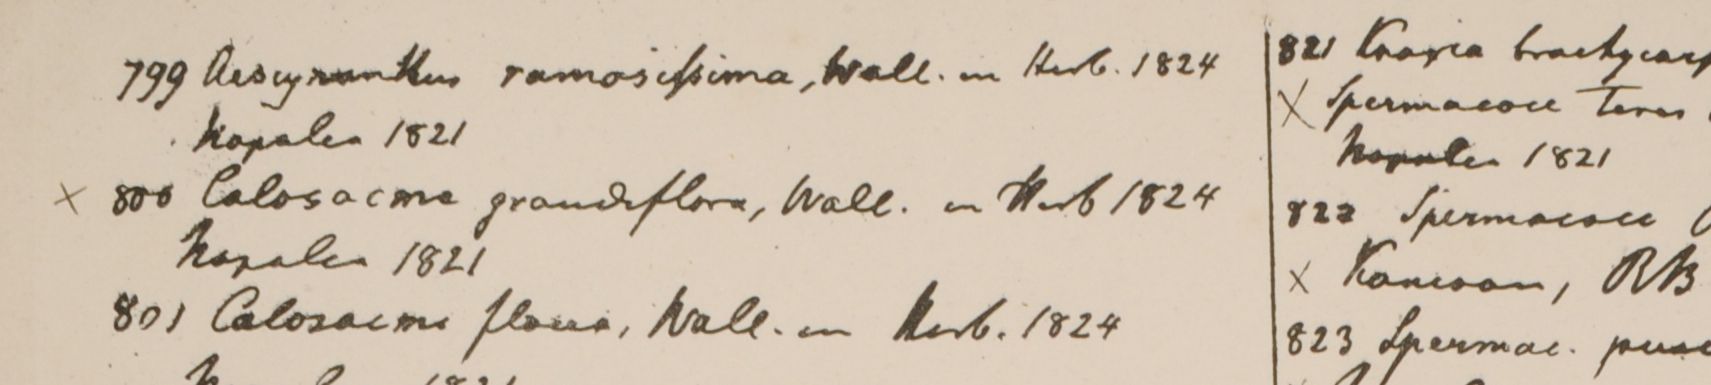 799 Aescynanthus ramosissima, Wall. in Herb. 1824
Napalea 1821
× 800 Calosacme grandiflora, Wall. in Herb 1824
Napalea 1821
801 Calosacme flava, Wall. in Herb. 1824
821 Knoxia brachycarp
× Spermacoce Teres
Napalea 1821
822 Spermacoce
× Kamoon, RB
823 Spermac.